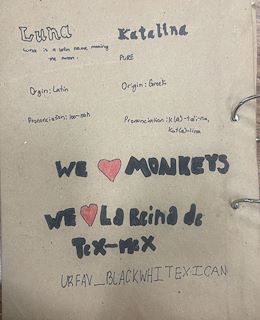 Luna
Luna is a latin name meaning
the moon.
Orgin: Latin
Pronunciation: loo-nah
Katalina
PURE
Origin: Greek
Pronunciation: K(a)-tali-na,
Kat(a)-lina
WE ❤ MONKEYS
WE ❤ La Reina de
Tex-Mex
URFAV_BLACKWHITEXICAN